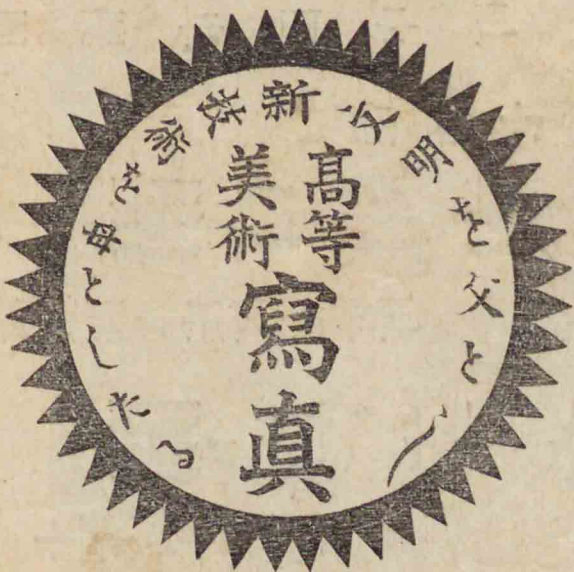 新文明を父とし
技術を母としたる
高等
美術
寫真